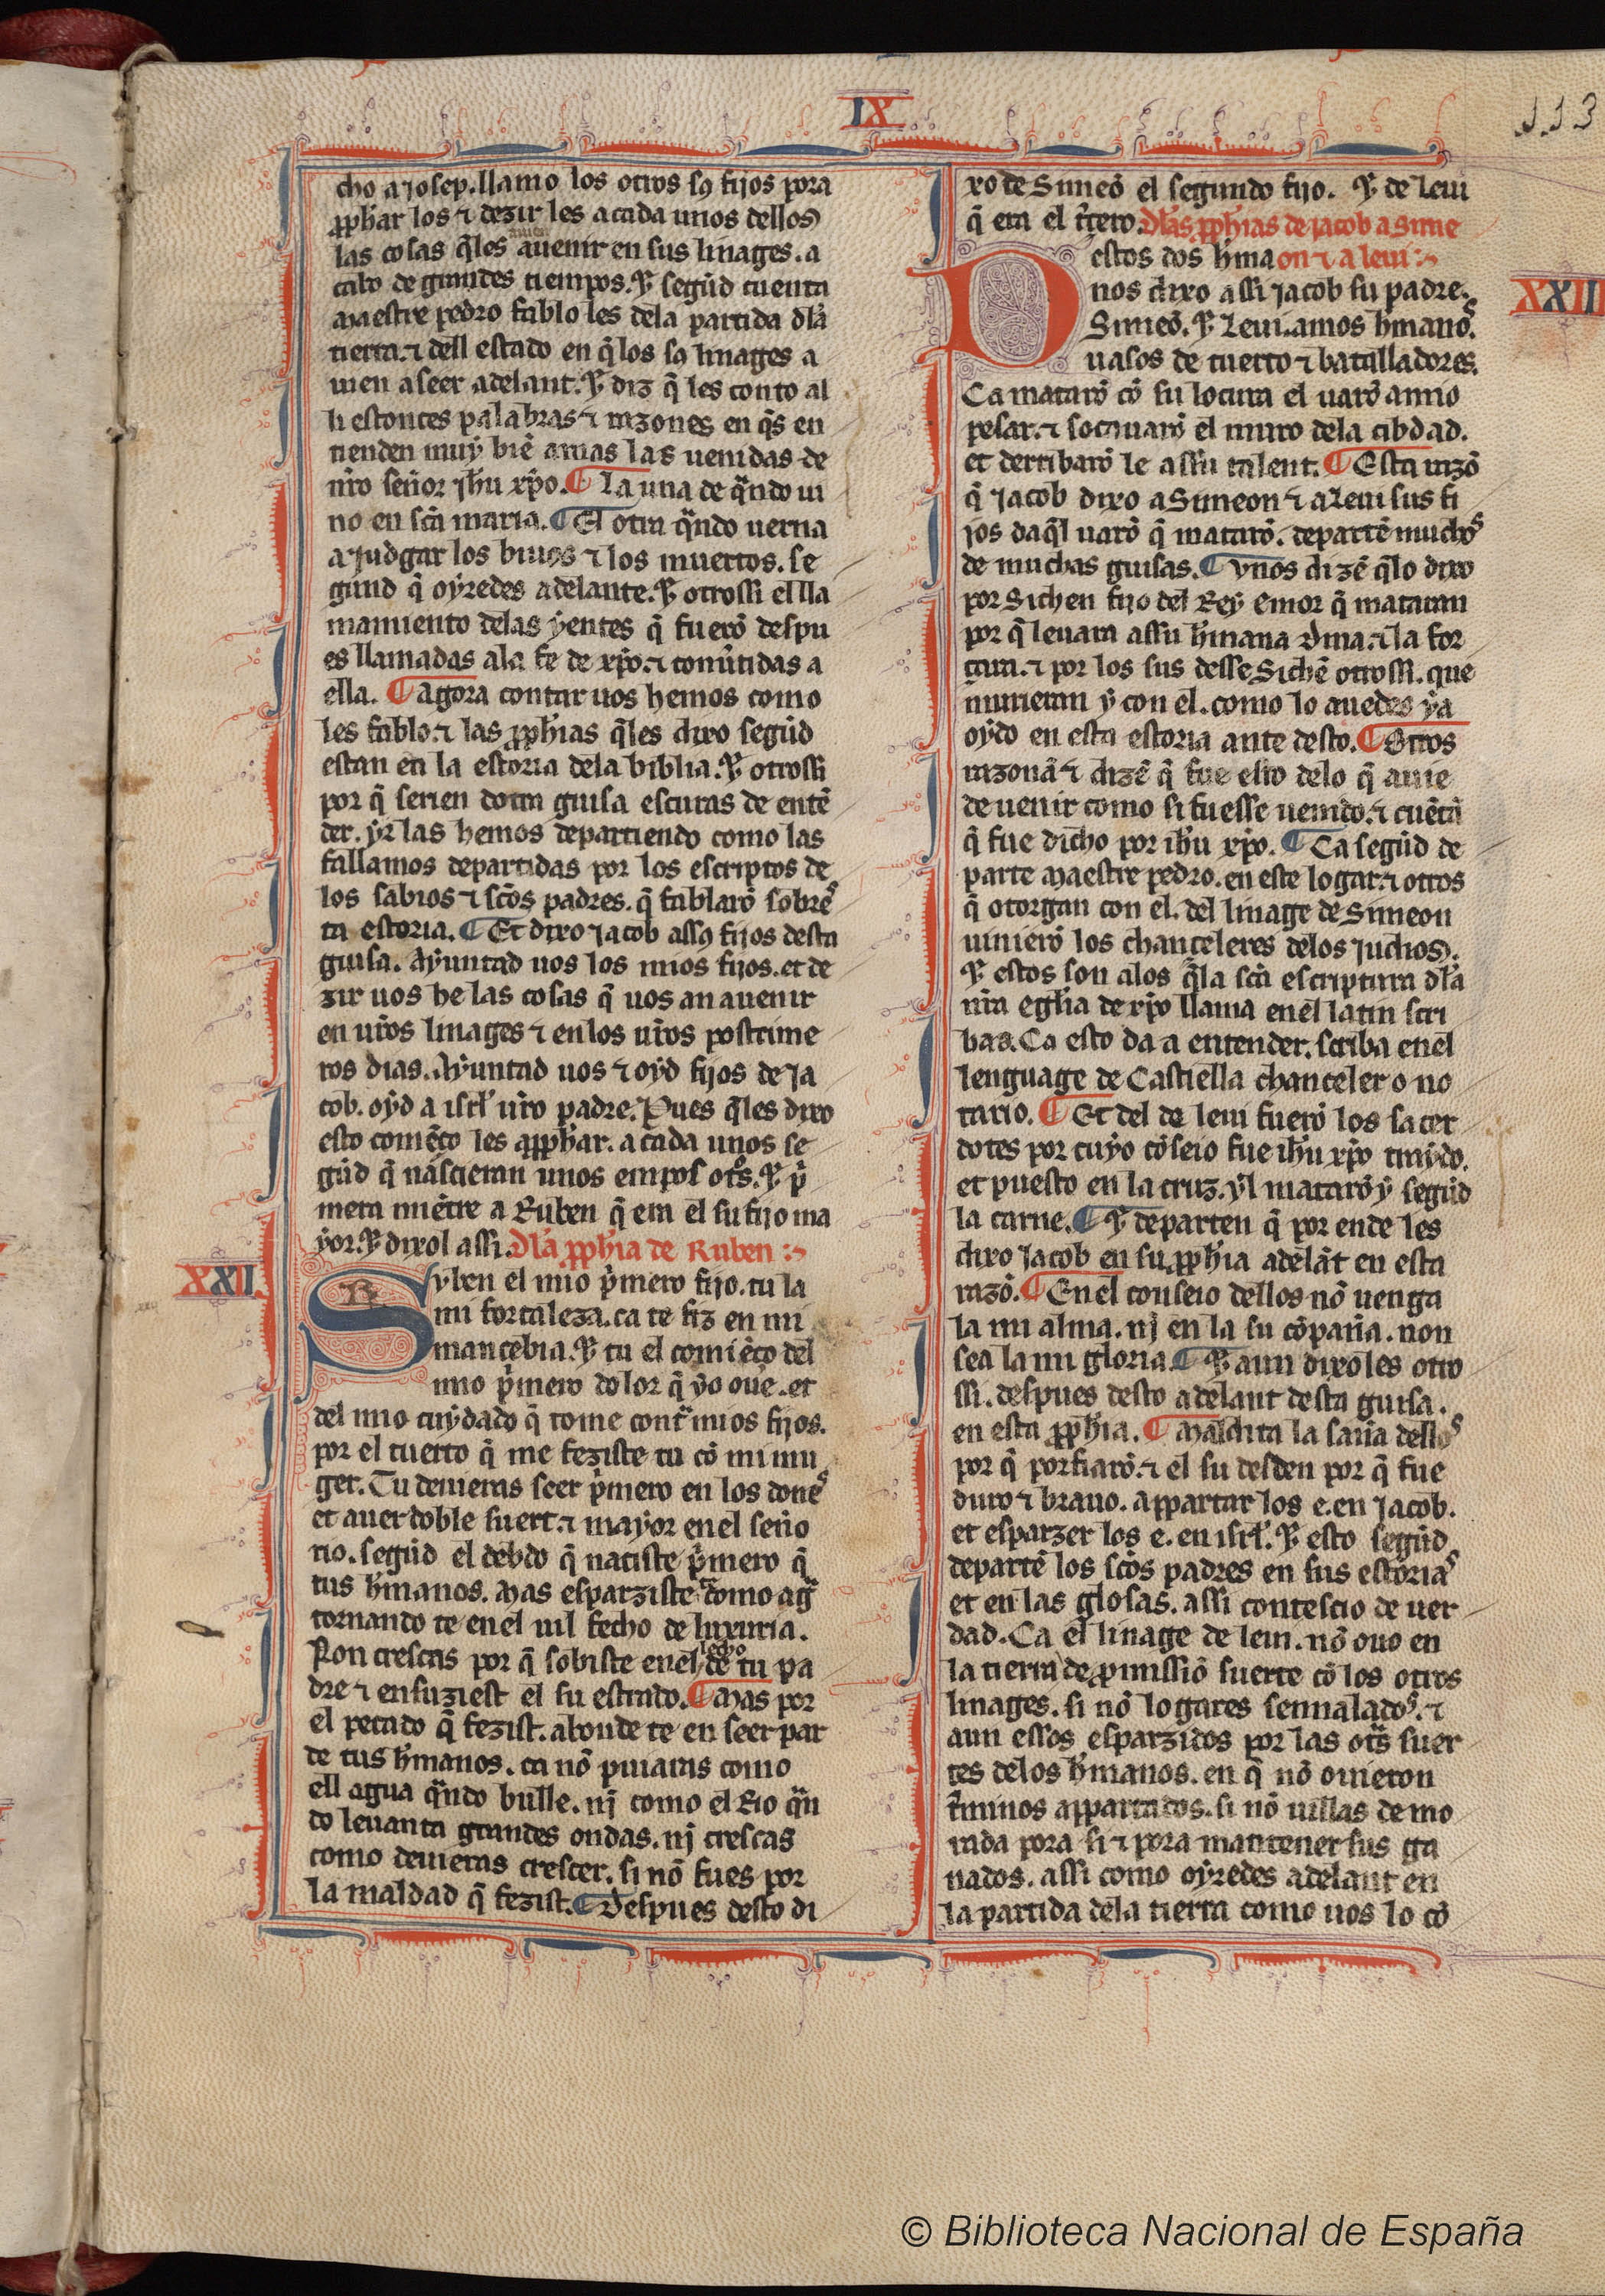 IX
113
cho a Josep. llamo los otros sꝯ fijos pora
ꝓph̃ar los ⁊ dezir les a cada unos dellos
las cosas q̃les auien auenir en sus linages. a
cabo de grandes tiempos. ⁊ segũd cuenta
maestre pedro fablo les dela partida dla
tierra. ⁊ dell estado en q̃ los sꝯ linages a
uien a seer adelant. ⁊ diz q̃ les conto al
li estonces palabras ⁊ razones en q̃s en
tienden muy biẽ amas las uenidas de
nr̃o señor jhũ xp̃o. ¶ La una de q̃ndo ui
no en sc̃a maria. ¶ El otra q̃ndo uerna
a judgar los biuos ⁊ los muertos. se
gund q̃ oyredes adelante. ⁊ otrossi el lla
mamiento delas yentes q̃ fuerõ despu
es llamadas ala fe de xp̃o. ⁊ conũtidas a
ella. ¶ Agora contar uos hemos como
les fablo. ⁊ las ꝓph̃ias q̃les dixo segũd
estan en la estoria dela biblia. ⁊ otrossi
por q̃ serien dotra guisa escuras de entẽ
der. yr las hemos departiendo como las
fallamos departidas por los escriptos de
los sabios ⁊ sc̃os padres. q̃ fablarõ sobres
ta estoria. ¶ Et dixo Jacob assꝯ fijos desta
guisa. Ayuntad uos los mios fijos. et de
zir uos he las cosas q̃ uos an auenir
en ur̃os linages ⁊ en los ur̃os postrime
ros dias. Ayuntad uos ⁊ oyd fijos de Ja
cob. oyd a isrl̃ ur̃o padre. Pues q̃les dixo
esto comẽço les a ꝓph̃ar. a cada unos se
gũd q̃ nascieran unos empos ot̃s. ⁊ p̃
mera miẽtre a Ruben q̃ era el su fijo ma
yor. ⁊ dixol assi. Dla ꝓph̃ia de Ruben :~
XXII
Ryben el mio p̃mero fijo. tu la
mi fortaleza. ca te fiz en mi
mancebia. ⁊ tu el comiẽço del
mio p̃mero dolor q̃ yo oue. et
del mio cuydado q̃ tome cont̃ mios fijos.
por el tuerto q̃ me feziste tu cõ mi mu
ger. Tu deuieras seer p̃mero en los dones
et auer doble suert. ⁊ mayor enel seño
rio. segũd el debdo q̃ naciste p̃mero q̃
tus h̃manos. Mas esparziste te como ag̃
tornando te enel uil fecho de luxuria.
Non crescas por q̃ sobiste enel lecho de tu pa
dre ⁊ ensuziest el su estrado. ¶ Mas por
el pecado q̃ fezist. abonde te en seer par
de tus h̃manos. ca nõ puiaras como
ell agua q̃ndo bulle. nj como el Rio q̃n
do leuanta grandes ondas. nj crescas
como deuieras crescer. si nõ fues por
la maldad q̃ fezist. ¶ Despues desto di
xo de Simeõ el segundo fijo. ⁊ de Leui
q̃ era el t̃cero. Dlas ꝓph̃ias de Jacob a Sime
estos dos h̃ma on ⁊ a leui :~
nos dixo assi Jacob su padre.
Simeõ. ⁊ Leui. amos h̃manos.
uasos de tuerto ⁊ batalladores.
XXIII
Ca matarõ cõ su locura el uarõ amio
pesar. ⁊ socauarõ el muro dela cibdad.
et derribarõ le assu talent. ¶ Esta razõ
q̃ Jacob dixo a Simeon ⁊ a Leui sus fi
jos daq̃l uarõ q̃ matarõ. departẽ muchos
de muchas guisas. ¶ Unos dizẽ q̃lo dixo
por Sichen fijo del Rey emor q̃ mataran
por q̃ leuara assu h̃mana dina. ⁊ la for
çara. ⁊ por los sus desse Sichẽ otrossi. que
murieran y con el. como lo auedes ya
oydo en esta estoria ante desto. ¶ Otros
razonã ⁊ dizẽ q̃ fue esto delo q̃ auie
de uenir como si fuesse uenido. ⁊ cuẽtã
q̃ fue dicho por ihũ xp̃o. ¶ Ca segũd de
parte maestre pedro. en este logar. ⁊ otros
q̃ otorgan con el. del linage de Simeon
uinierõ los chanceleres delos judios.
⁊ estos son alos q̃la sc̃a escriptura dla
nr̃a eglia de xp̃o llama enel latin scri
bas. Ca esto da a entender. scriba enel
lenguage de Castiella chanceler o no
tario. ¶ Et del de leui fuerõ los sacer
dotes por cuyo cõseio fue ihũ xp̃o traydo.
et puesto en la cruz. yl matarõ y segũd
la carne. ¶ ⁊ departen q̃ por ende les
dixo Jacob en su ꝓph̃ia adelãt en esta
razõ. ¶ En el conseio dellos nõ uenga
la mi alma. nj en la su cõpaña. non
sea la mi gloria. ¶ ⁊ aun dixoles otro
ssi. despues desto adelant desta guisa.
en esta ꝓph̃ia. ¶ Maldita la saña dellos
por q̃ porfiarõ. ⁊ el su desden por q̃ fue
duro ⁊ brauo. appartar los e. en Jacob.
et esparzer los e. en isrl̃. ⁊ esto segũd
departẽ los sc̃os padres en sus estorias
et en las glosas. assi contescio de uer
dad. Ca el linage de leui. nõ ouo en
la tierra de ꝓmissiõ suerte cõ los otros
linages. si nõ logares sennalados. ⁊
aun essos esparzidos por las ot̃s suer
tes delos h̃manos. en q̃ nõ ouieron
t̃minos appartados. si nõ uillas de mo
rada pora si ⁊ pora mantener sus ga
nados. assi como oyredes adelant en
la partida dela tierra como uos lo cõ
© Biblioteca Nacional de España